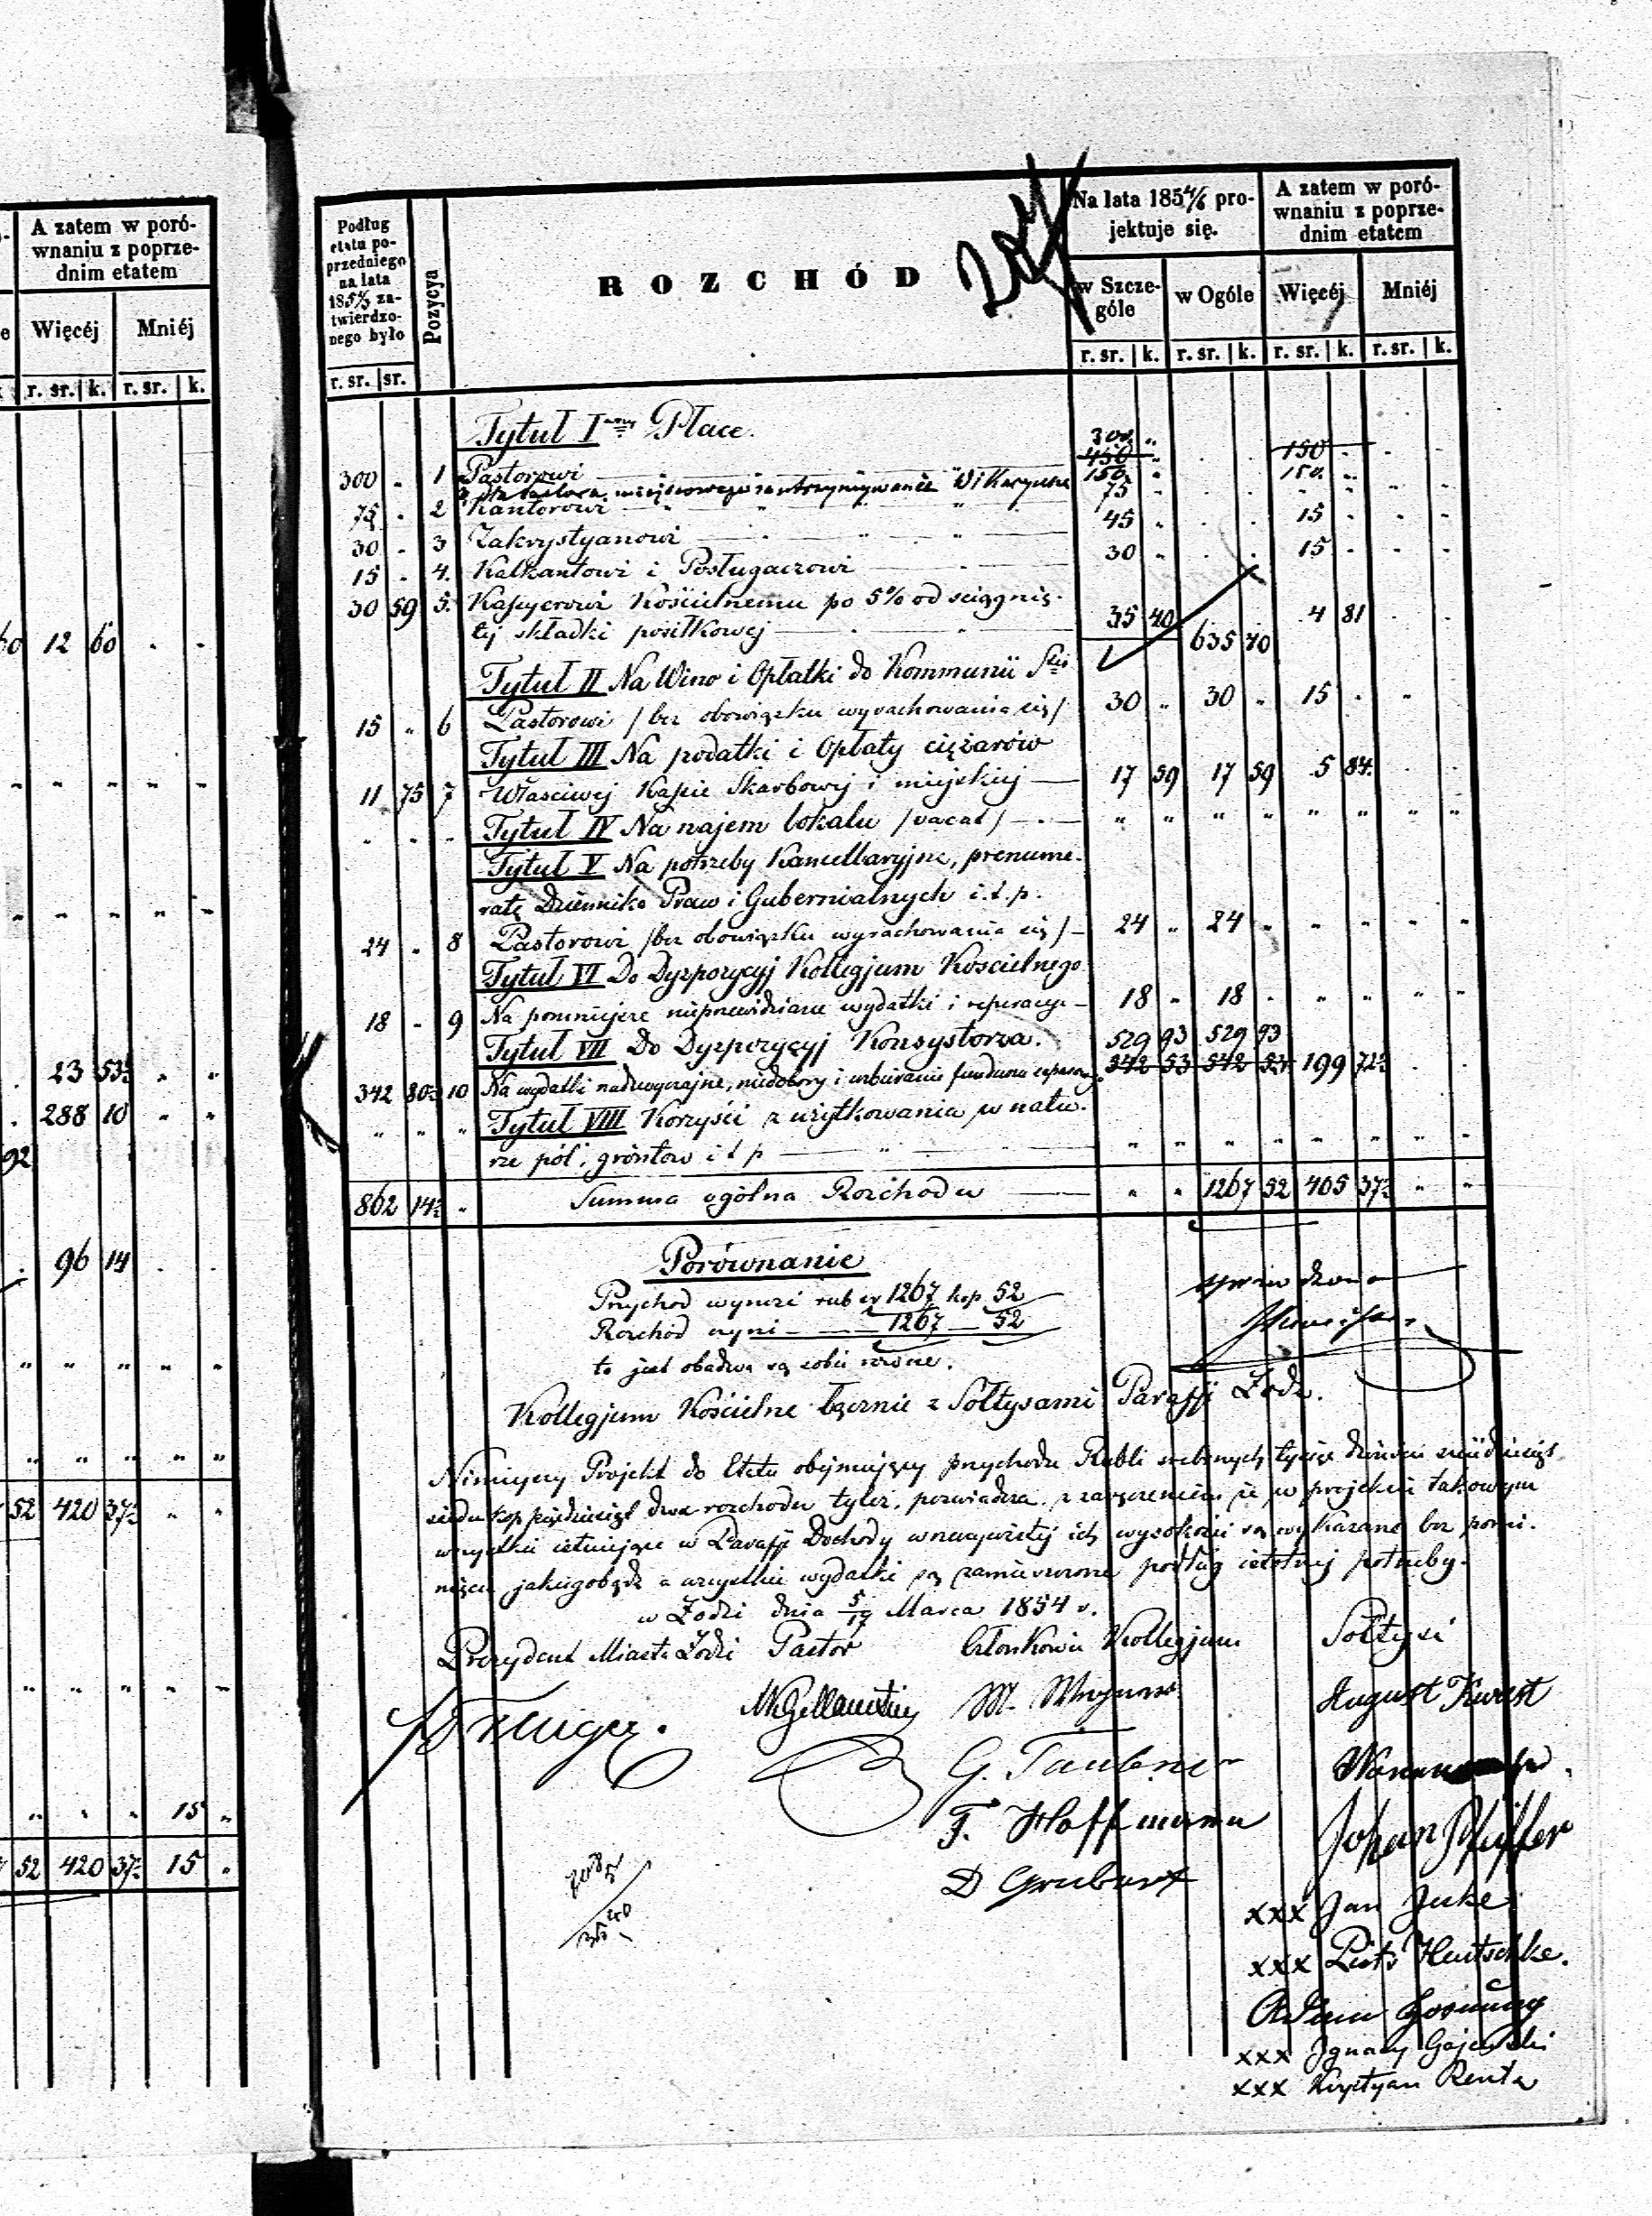 A zatem w poró-
wnaniu z poprze-
dnim etatem
Więcéj Mniéj
r. sr. k. r. sr. k.
12 60
23 53½
288 10
92
96 14
52 420 37½
15
52 420 37½ 15
Podług
etatu po-
przedniego
na lata
185 za-
twierdzo-
nego było
r. sr. sr.
Pozycya
ROZCHÓD
Na lata 1854/6 pro-
jektuje się.
w Szcze-
góle
w Ogóle
r. sr. k. r. sr. k.
A zatem w poró-
wnaniu z poprze-
dnim etatem
Więcéj Mniéj
r. sr. k. r. sr. k.
Tytuł I Płace.
300 " 1 Pastorowi 300 " 450 " 150 "
miejscowego na utrzymywanie Wikaryusza 150 " 150 "
75 " 2 Kantorowi 75 "
30 " 3 Zakrystyanowi 45 " 15 "
15 " 4. Kalkantowi i Posługaczowi 30 " 15 "
30 59 5. Kassyerowi Kościelnemu po 5% od ściągnię-
tej składki posiłkowej 35 40 635 40 4 81
Tytuł II Na Wino i Opłatki do Kommunii Stej
15 " 6 Pastorowi /bez obowiązku wyrachowania się/ 30 " 30 " 15 "
Tytuł III Na podatki i Opłaty ciężarów
11 75 7 Właściwej Kassie Skarbowej i miejskiej 17 59 17 59 5 84
" " " Tytuł IV Na najem lokalu /vacat/ " " " " " " " "
Tytuł V Na potrzeby Kancellaryjne, prenume-
ratę Dziennika Praw i Gubernialnych i.t.p.
24 " 8 Pastorowi /bez obowiązku wyrachowania się/ 24 " 24 " " " " "
Tytuł VI Do Dyspozycyj Kollegjum Kościelnego
18 " 9 Na pomniejsze nieprzewidziane wydatki i reperacye 18 " 18 " " " " "
Tytuł VII Do Dyspozycyj Konsystorza. 529 93 529 93
342 80½ 10 Na wydatki nadzwyczajne, niedobory i uzbieranie funduszu 542 53 542 53 199 72½
" " " Tytuł VIII Korzyści z użytkowania w natu-
rze pól, gróntow i t p " " " " " " " "
862 14½ " Summa ogólna Rozchodu " " 1267 52 405 37½ " "
Porównanie
Przychod wynosi rub sr 1267 kop. 52
Rozchód czyni 1267 — 52
to jest obadwa są sobie równe.
sprawdzono
Kollegjum Kościelne łącznie z Sołtysami Paraffji Łodz.
Niniejszy Projekt do Etatu obejmujący przychodu Rubli srebrnych tysiąc dwieście sześdziesiąt
siedm kop pięćdziesiąt dwa rozchodu tyleż, poświadcza z zaręczeniem że w projekcie takowym
wszystkie istniejące w Paraffji Dochody w rzeczywistej ich wysokości są wykazane bez pomi-
nięcia jakiegobądź a wszystkie wydatki są zamieszczone podług istotnej potrzeby.
w Łodzi dnia 5/17 Marca 1854 r.
Prezydent Miasta Łodzi Pastor Członkowie Kollegjum Sołtysi
Traeger.
G. Taubner
F. Hoffmann
D Grubert
August Kunst
Johan Pfeiffer
xxx Jan Juke
xxx Piotr Hentschke.
Adam
xxx Ignacy Gajewski
xxx Krystyan Renta
35 40